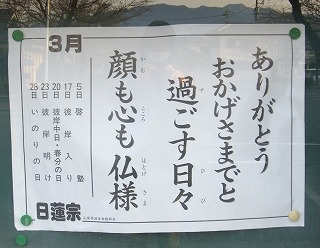 ありがとう
おかげさまでと
過ごす日々
顔も心も仏様
3月
5日 啓蟄
17日 彼岸入り
20日 彼岸中日・春分の日
23日 彼岸明け
28日 いのりの日
日蓮宗